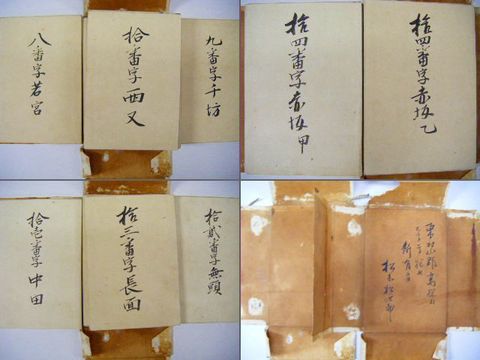 八番字若宮
拾番字西又
九番字千坊
拾四番字赤坂甲
拾四番字赤坂乙
拾壱番字中田
拾三番字長面
拾貳番字無頭